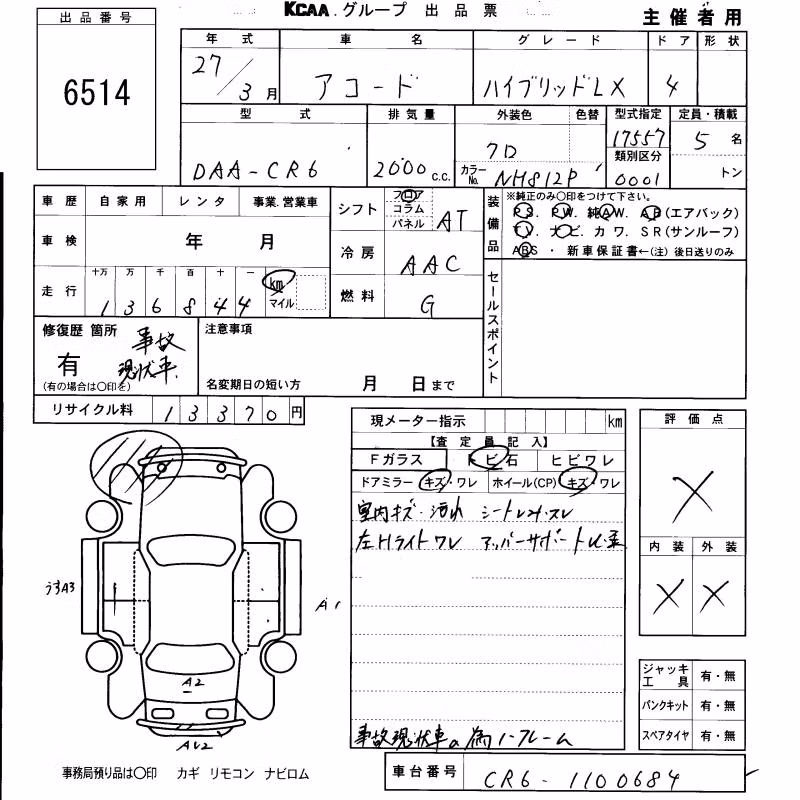 出品番号 KCAA.グループ 出品票 主催者用
6514
年式 車名 グレード ドア 形状
27/3月 アコード ハイブリッドLX 4
型式 排気量 外装色 色替 型式指定 定員・積載
DAA-CR6 2000 c.c. クロ 17557 5名
カラーNo. NH812P 類別区分 0001 トン
車歴 自家用 レンタ 事業.営業車
シフト フロア コラム パネル AT
装備品 ※純正のみ○印をつけて下さい。
PS. PW. 純AW. AB(エアバック)
TV. ナビ. カワ. SR(サンルーフ)
ABS・新車保証書←(注)後日送りのみ
車検 年 月
冷房 AAC
走行 十万 万 千 百 十 一 km マイル
136844
燃料 G
セールスポイント
修復歴 箇所 事故
有 現状車.
(有の場合は○印を)
注意事項
名変期日の短い方 月 日まで
リサイクル料 13370円
現メーター指示 km
【査定員記入】
Fガラス トビ石 ヒビワレ
ドアミラー キズ・ワレ ホイール(CP) キズ・ワレ
室内キズ・汚れ シート
左Hライトワレ アッパーサポート
事故現状車の為ノークレーム
評価点
×
内装 外装
× ×
うすA3
A1
A2
ジャッキ工具 有・無
パンクキット 有・無
スペアタイヤ 有・無
事務局預り品は○印 カギ リモコン ナビロム
車台番号 CR6-1100684